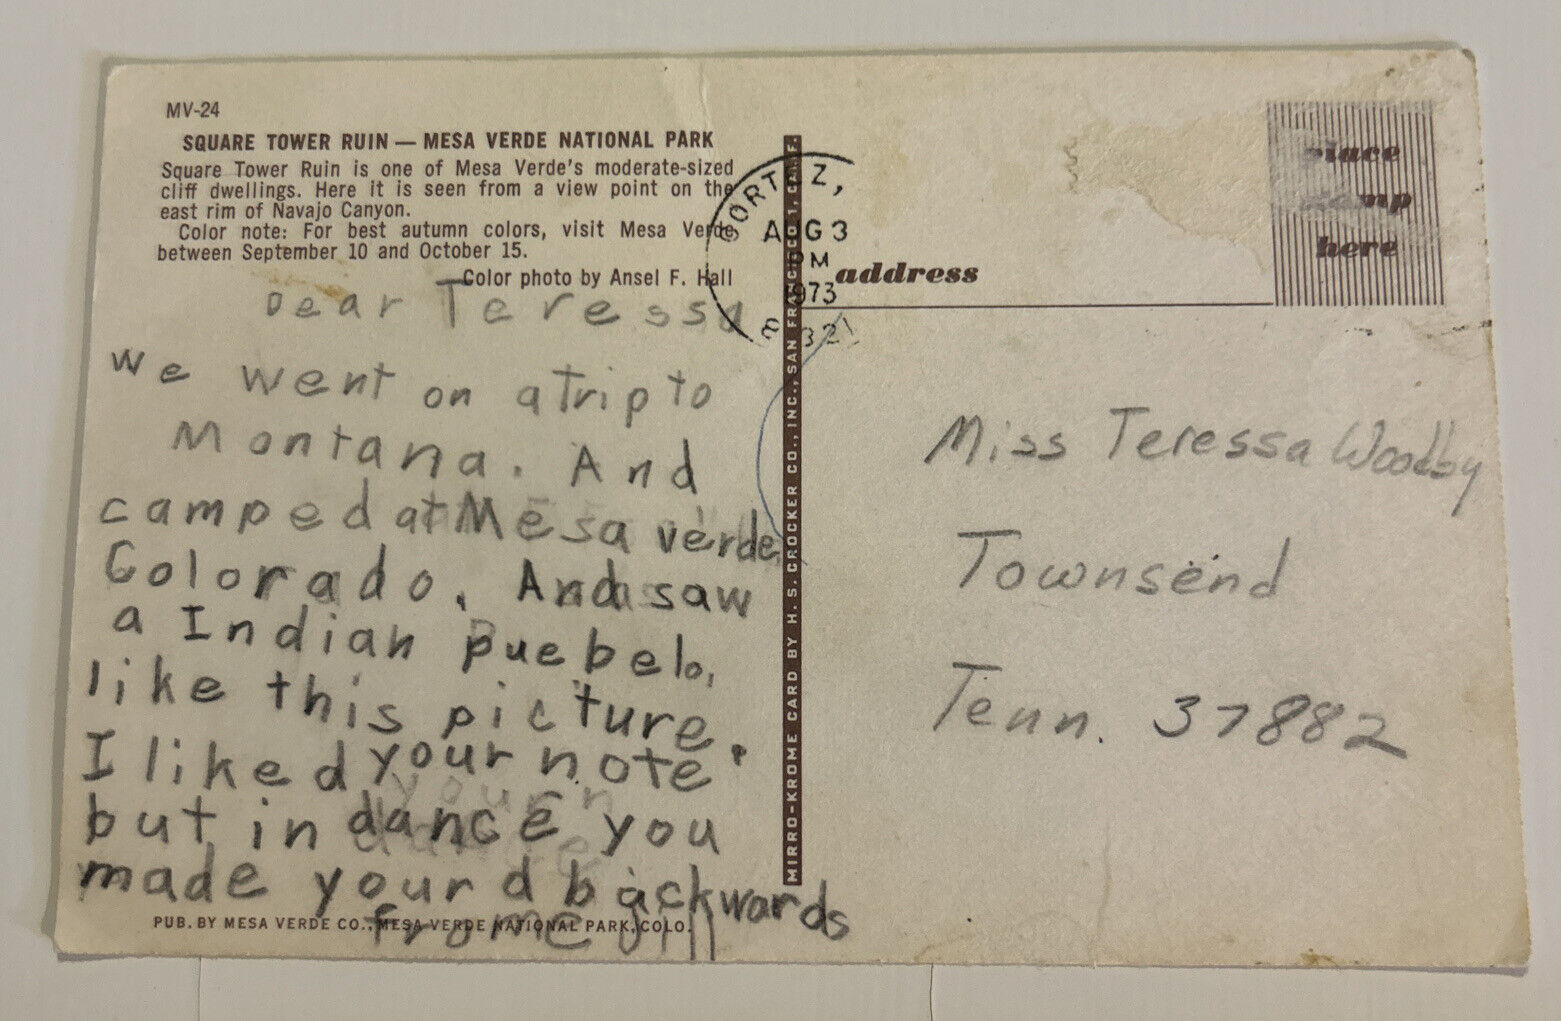 MV-24
SQUARE TOWER RUIN — MESA VERDE NATIONAL PARK
Square Tower Ruin is one of Mesa Verde's moderate-sized
cliff dwellings. Here it is seen from a view point on the
east rim of Navajo Canyon.
Color note: For best autumn colors, visit Mesa Verde
between September 10 and October 15.
Color photo by Ansel F. Hall
Dear Teressa
we went on a trip to
Montana. And
camped at Mesa verde
Colorado. And saw
a Indian puebelo,
like this picture.
I liked your note
but in dance you
made your d backwards
from Jill
PUB. BY MESA VERDE CO., MESA VERDE NATIONAL PARK, COLO.
CORTEZ,
AUG 3
PM
1973
MIRRO-KROME CARD BY H. S. CROCKER CO., INC., SAN FRANCISCO 1, CALIF.
place
stamp
here
address
Miss Teressa Woodby
Townsend
Tenn. 37882